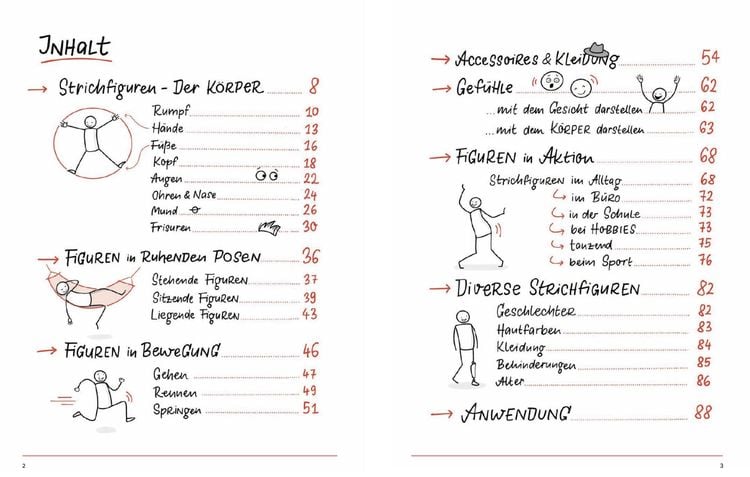 Inhalt
→ Strichfiguren - Der Körper 8
Rumpf 10
Hände 13
Füße 16
Kopf 18
Augen 22
Ohren & Nase 24
Mund 26
Frisuren 30
→ Figuren in Ruhenden Posen 36
Stehende Figuren 37
Sitzende Figuren 39
Liegende Figuren 43
→ Figuren in Bewegung 46
Gehen 47
Rennen 49
Springen 51
2
→ Accessoires & Kleidung 54
→ Gefühle 62
...mit dem Gesicht darstellen 62
...mit dem Körper darstellen 63
→ Figuren in Aktion 68
Strichfiguren im Alltag 68
im Büro 72
in der Schule 73
bei Hobbies 73
tanzend 75
beim Sport 76
→ Diverse Strichfiguren 82
Geschlechter 82
Hautfarben 83
Kleidung 84
Behinderungen 85
Alter 86
→ Anwendung 88
3